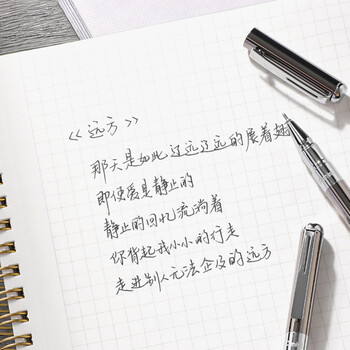 《远方》
那天是如此辽远辽远的展着翅
即使爱是静止的
静止的回忆流淌着
你背起我小小的行走
走进别人无法企及的远方